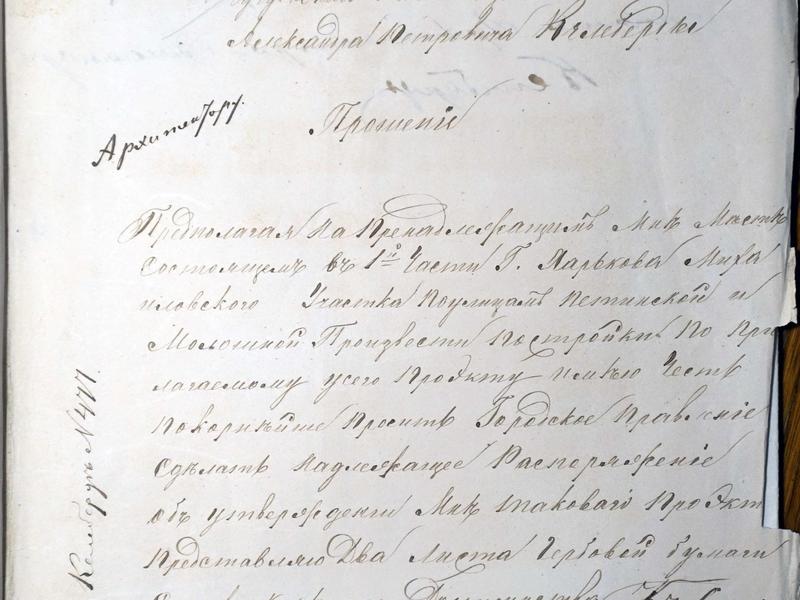 Александра Петровича Кельберга
Архитектору.
Прошеніе
Предполагая на Пренадлежащимъ Мнѣ Мѣстѣ
состоящемъ въ 1й Части Г. Харькова Миха
иловского Участка поулицамъ Петинской и
Молошной Произвести постройки по При
лагаемому усего проэкту имѣю Честь
покорнѣйше просить Городское Правленіе
сдѣлать надлежащее Распоряженіе
объ утвержденіи Мнѣ таковаго проэкт
Представляю Два Листа Гербовой бумаги
Кельбергъ N 477.